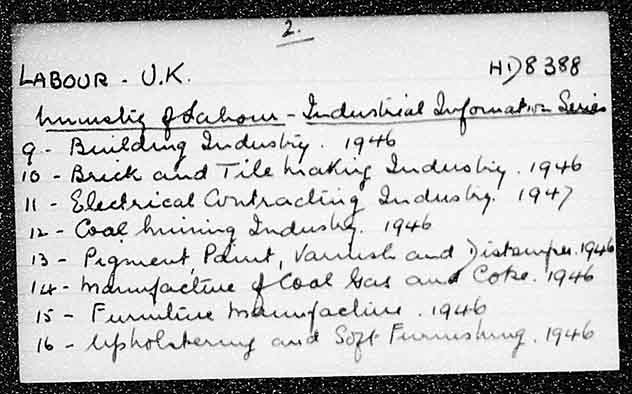 2.
LABOUR - U.K. HD8388
Ministry of Labour - Industrial Information Series
9 - Building Industry. 1946
10 - Brick and Tile Making Industry. 1946
11 - Electrical Contracting Industry. 1947
12 - Coal Mining Industry. 1946
13 - Pigment, Paint, Varnish and Distemper. 1946
14 - Manufacture of Coal Gas and Coke. 1946
15 - Furniture Manufacture. 1946
16 - Upholstering and Soft Furnishing. 1946